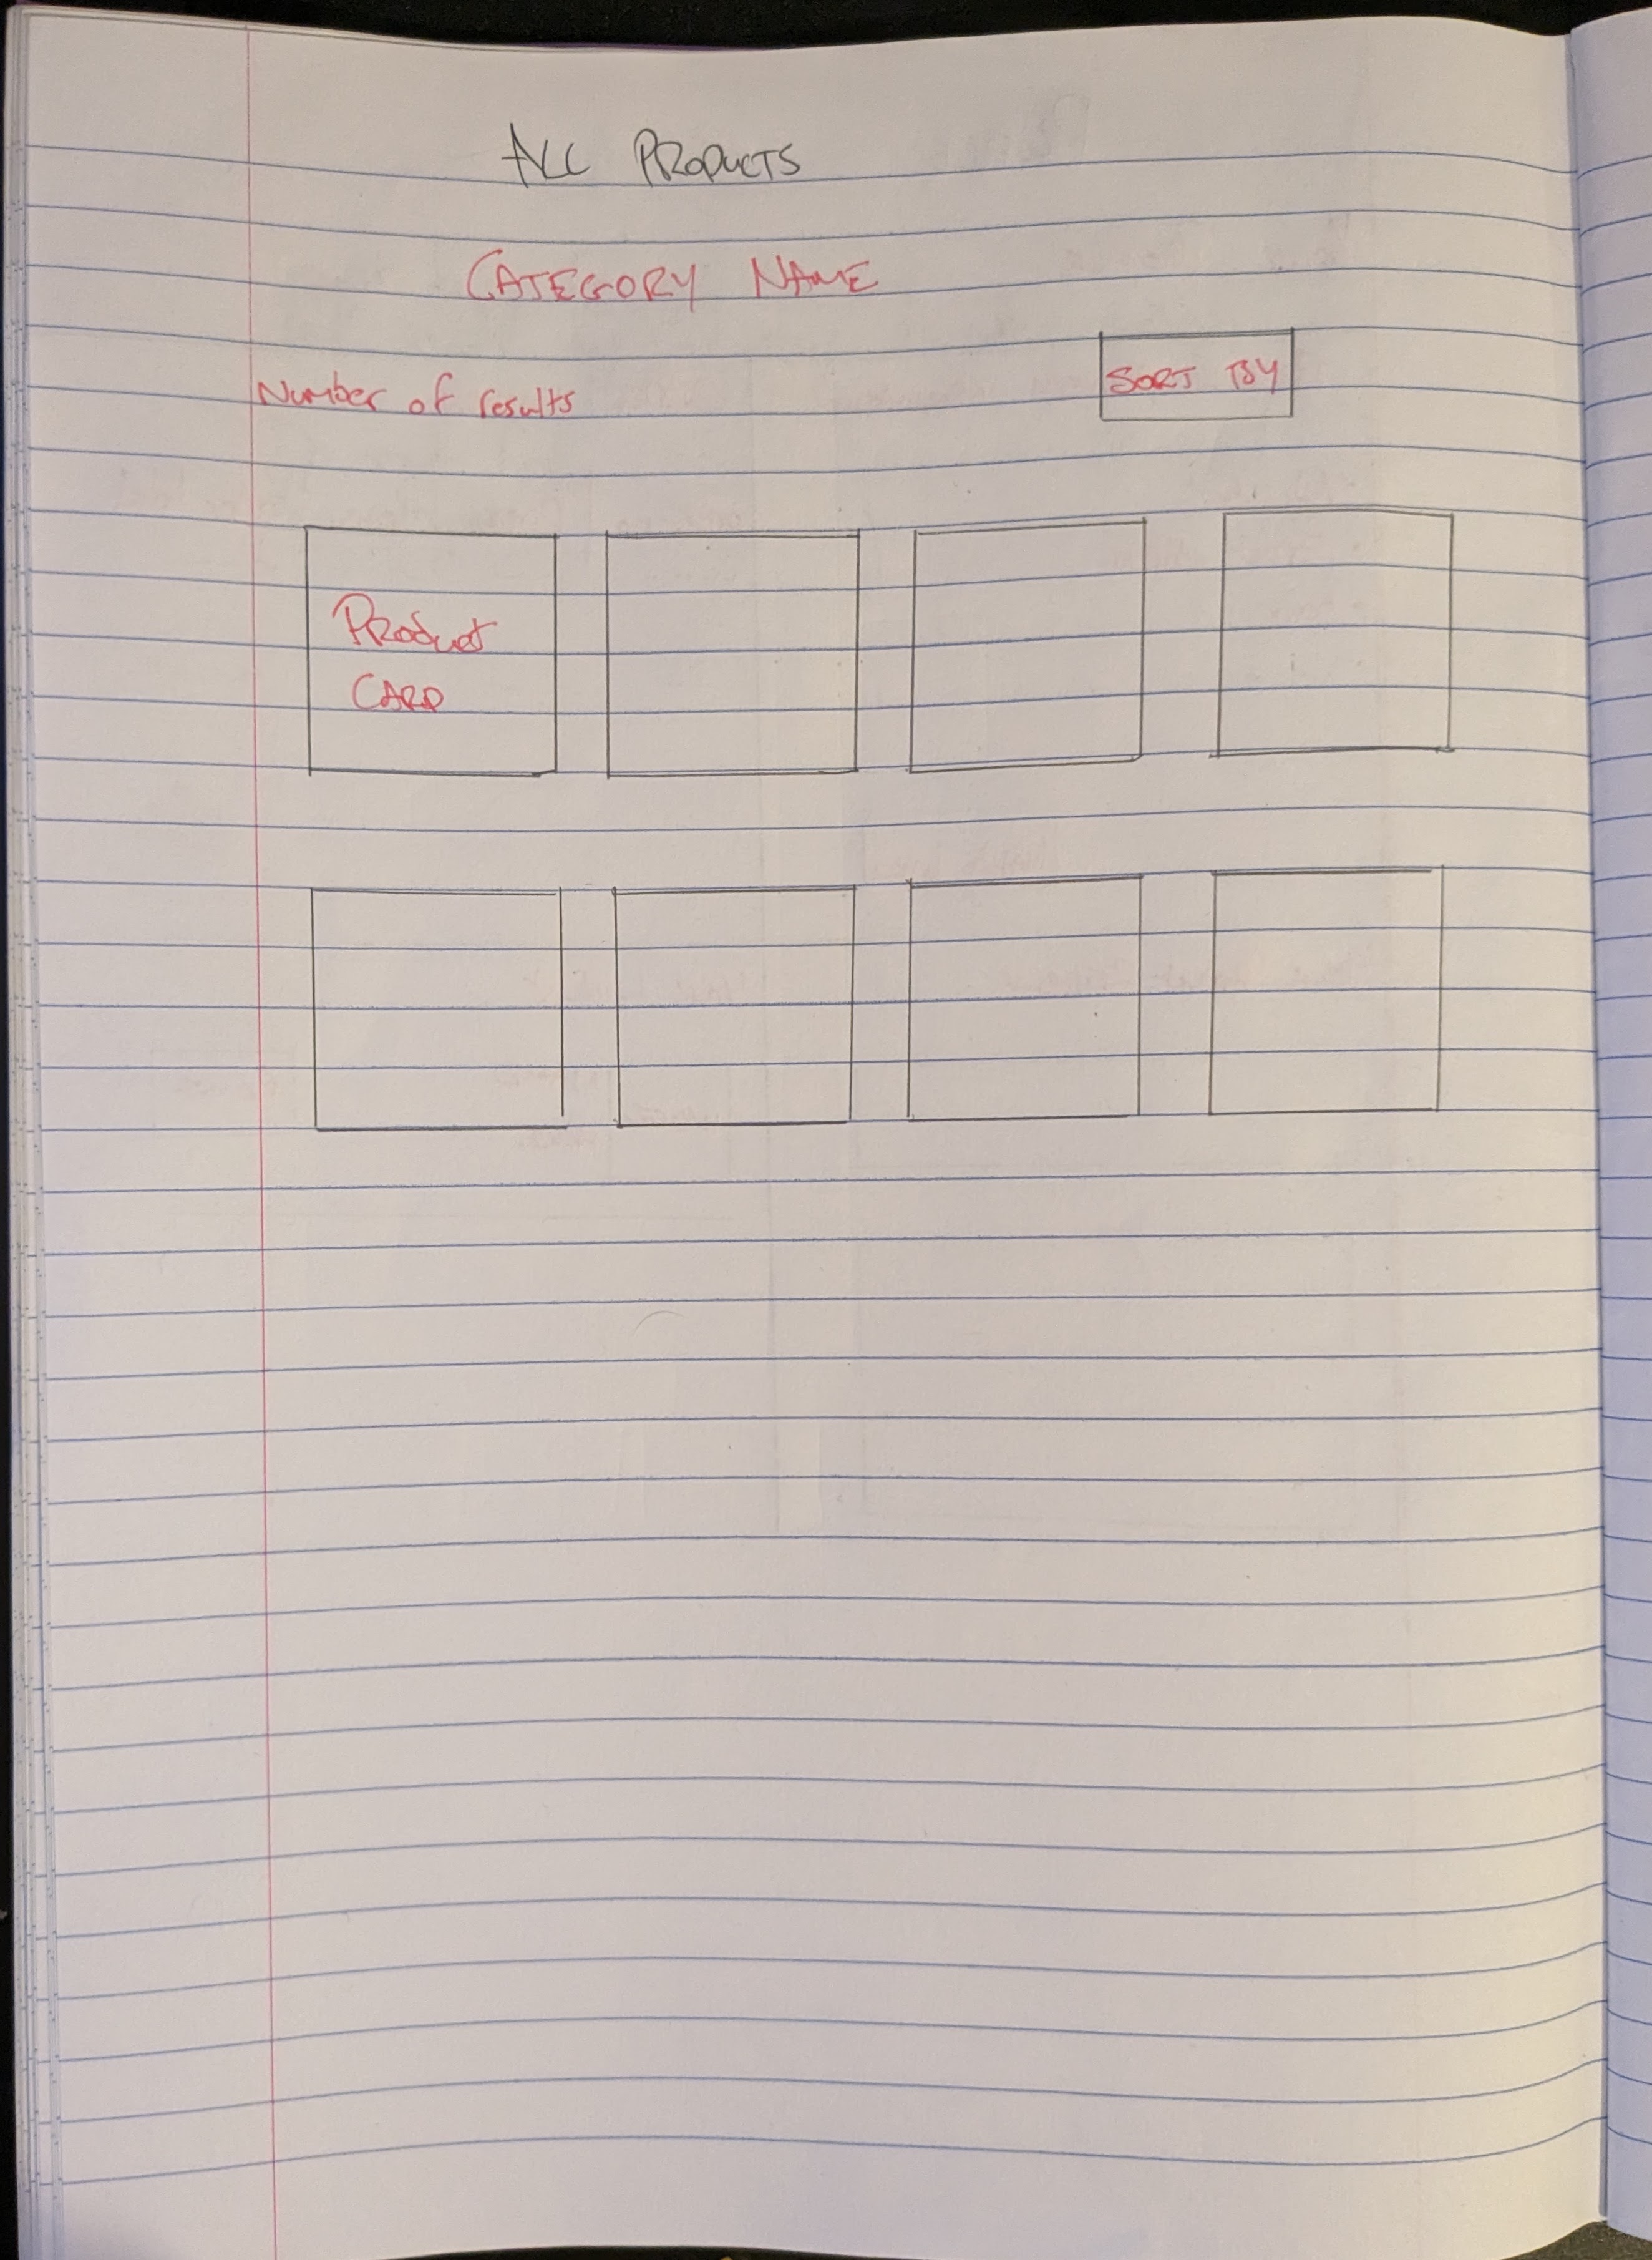 ALL PRODUCTS
CATEGORY NAME
Number of results
SORT BY
PRoduct
CARD